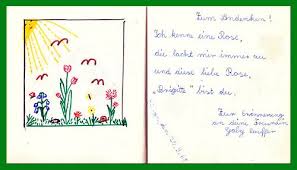 Zum Andenken!
Ich kenne eine Rose,
die lacht mir immer zu
und diese liebe Rose,
„Brigitte" bist du.
Zur Erinnerung
an deine Freundin
Gaby